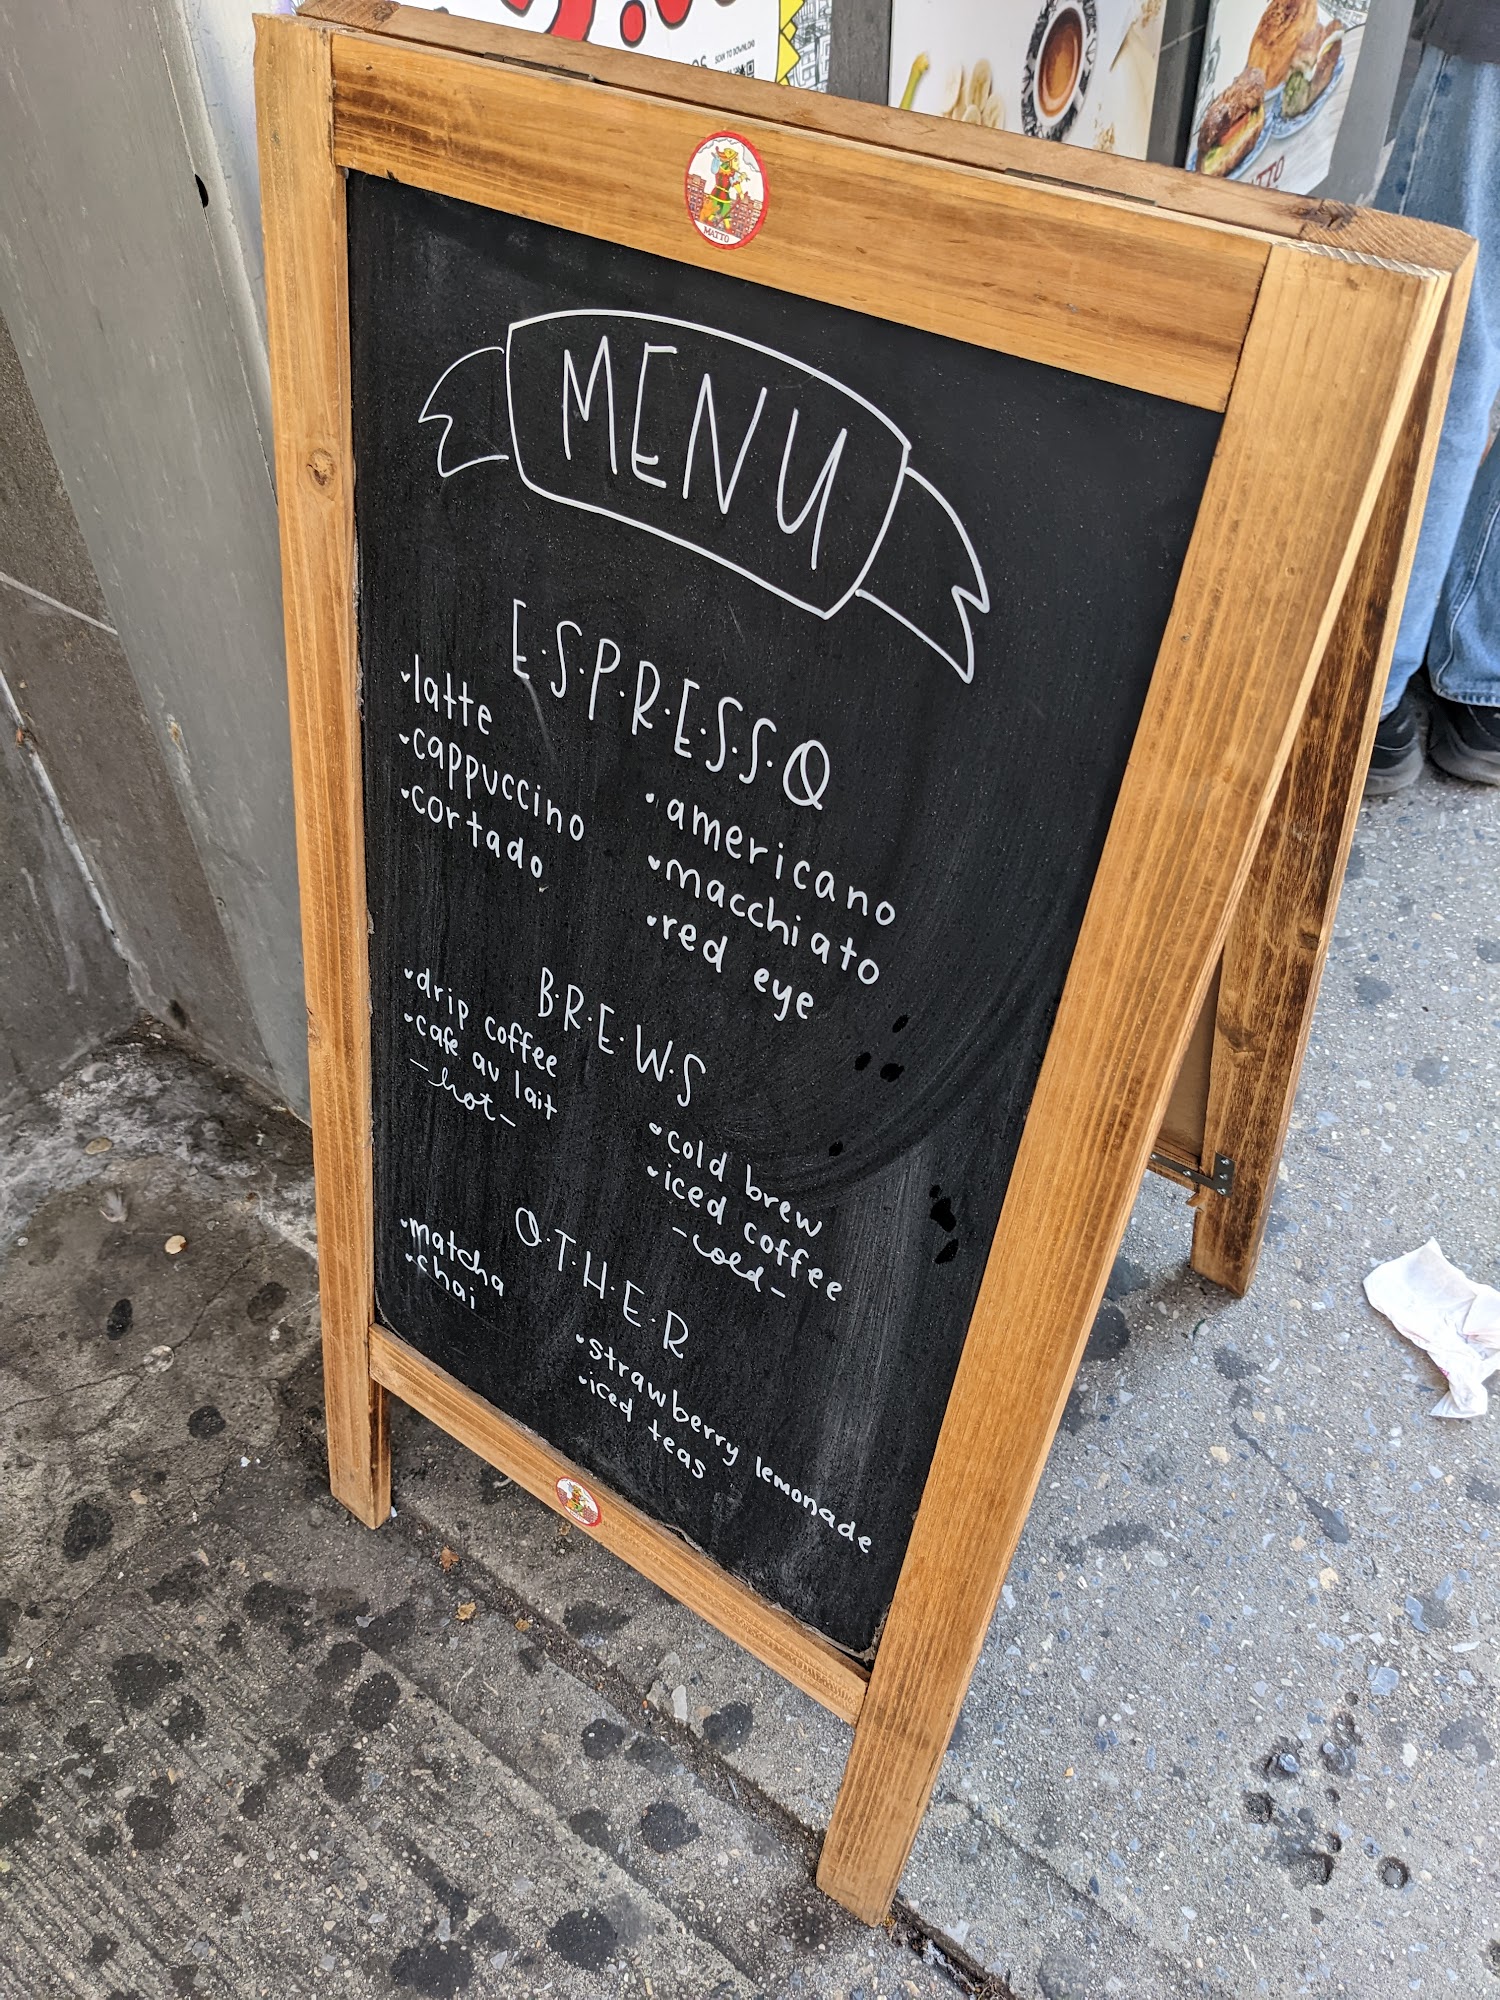 SCAN TO DOWNLOAD
MATTO
MENU
E·S·P·R·E·S·S·O
latte
cappuccino
cortado
americano
macchiato
red eye
B·R·E·W·S
drip coffee
cafe au lait
-hot-
cold brew
iced coffee
-cold-
O·T·H·E·R
matcha
chai
strawberry lemonade
iced teas